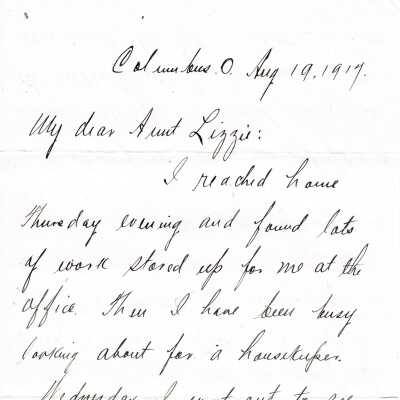 Columbus. O. Aug 19, 1917.
My dear Aunt Lizzie:
I reached home
Thursday evening and found lots
of work stored up for me at the
office. Then I have been busy
looking about for a housekeeper.
Wednesday I went out to see